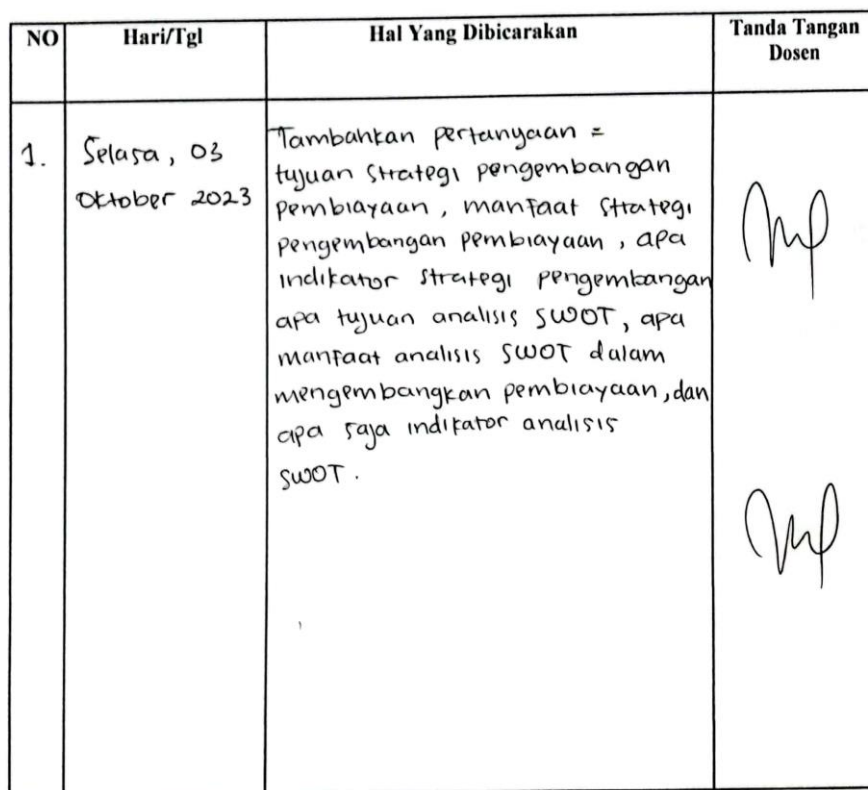 NO Hari/Tgl Hal Yang Dibicarakan Tanda Tangan
Dosen
1. Selasa, 03
Oktober 2023
Tambahkan pertanyaan =
tujuan strategi pengembangan
pembiayaan, manfaat strategi
pengembangan pembiayaan, apa
indikator strategi pengembangan
apa tujuan analisis SWOT, apa
manfaat analisis SWOT dalam
mengembangkan pembiayaan, dan
apa saja indikator analisis
SWOT.